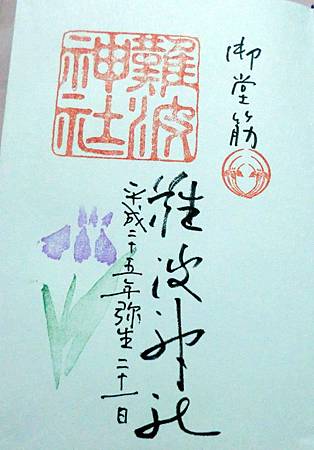 御堂筋
難波神社
難波神社
平成二十五年弥生二十一日